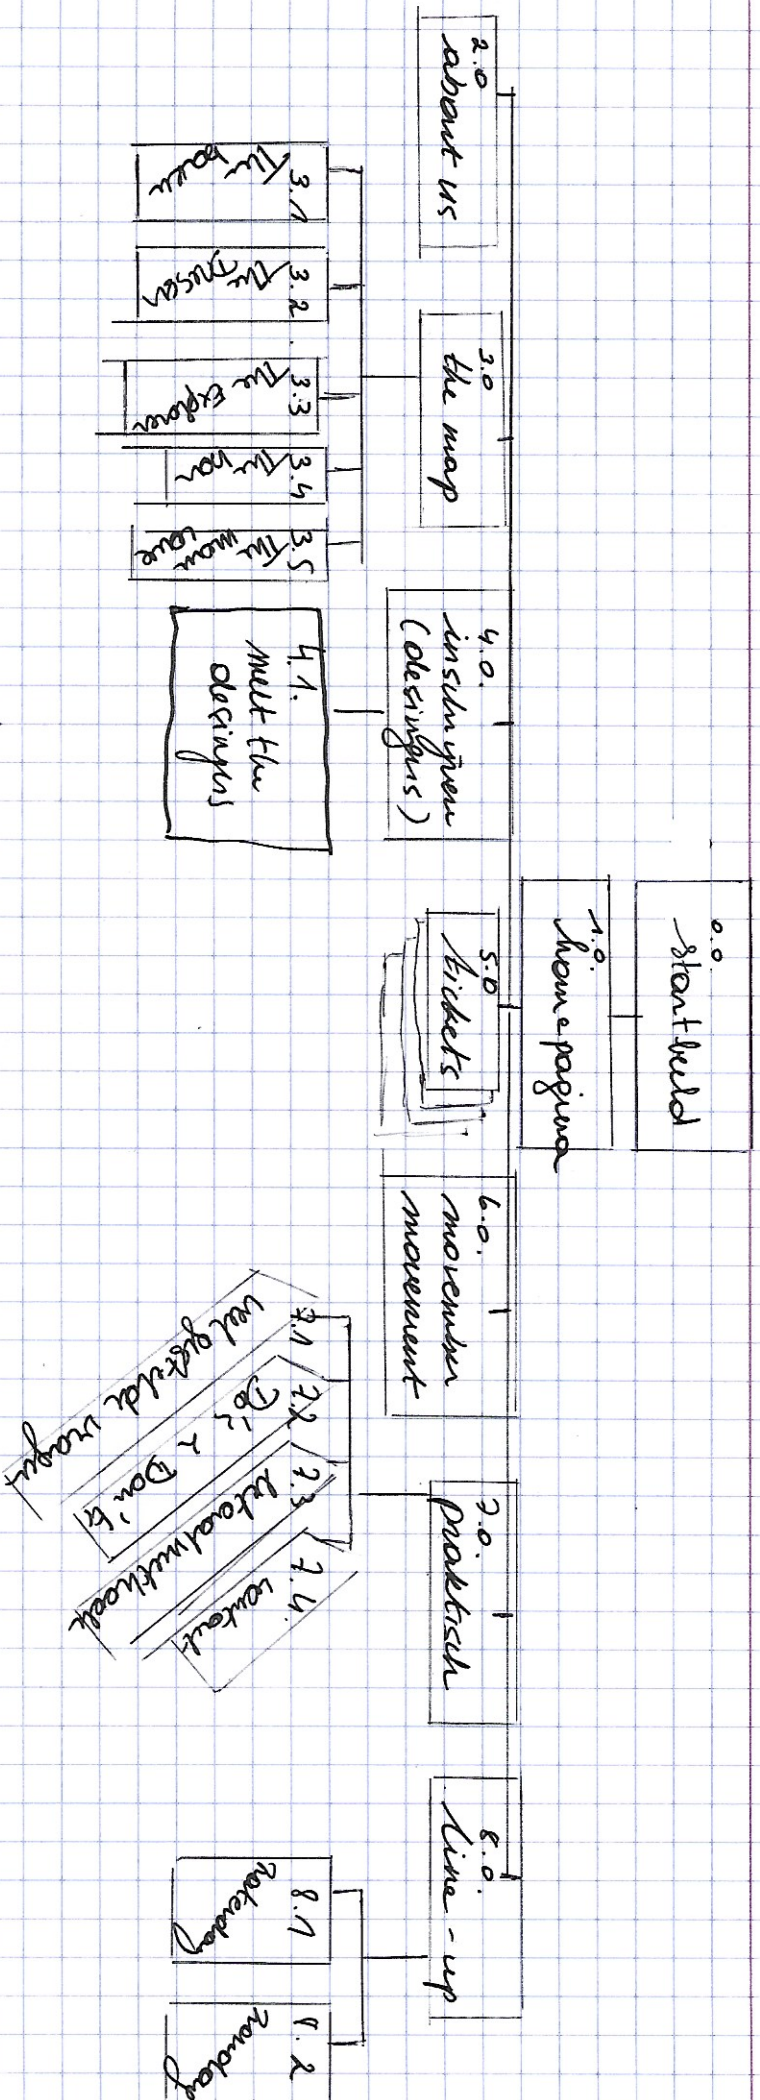 0.0.
startbeeld
1.0.
homepagina
2.0
about us
3.0
the map
3.1
The
3.2
The
3.3
The Explorer
3.4
The bar
3.5
The
cave
4.0.
inschrijven
(desingers)
4.1.
meet the
desingers
5.0
tickets
6.0.
movember
movement
7.0.
praktisch
7.1
veel gestelde vragen
7.2
Do's & Don'ts
7.3
betaalmethode
7.4.
contact
8.0.
line-up
8.1
Zaterdag
8.2
Zondag